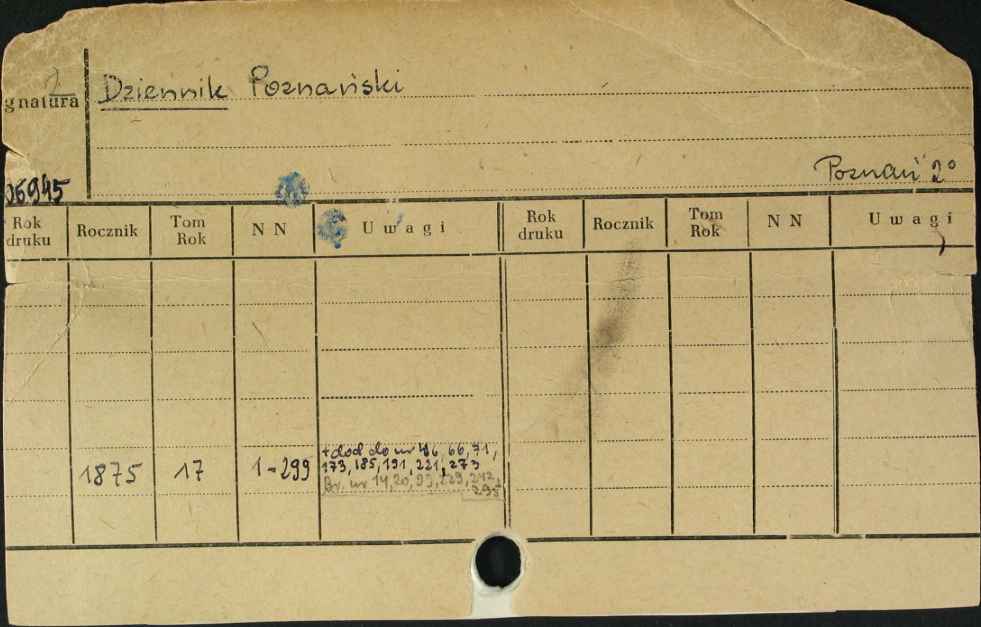 gnatura
Dziennik Poznański
Poznań 2°
06945
Rok druku Rocznik Tom Rok N N Uwagi Rok druku Rocznik Tom Rok N N Uwagi
1875 17 1-299 + dod do nr 46, 66, 71,
173, 185, 191, 221, 273
Br. nr 14, 20, 99, 229, 242,
295